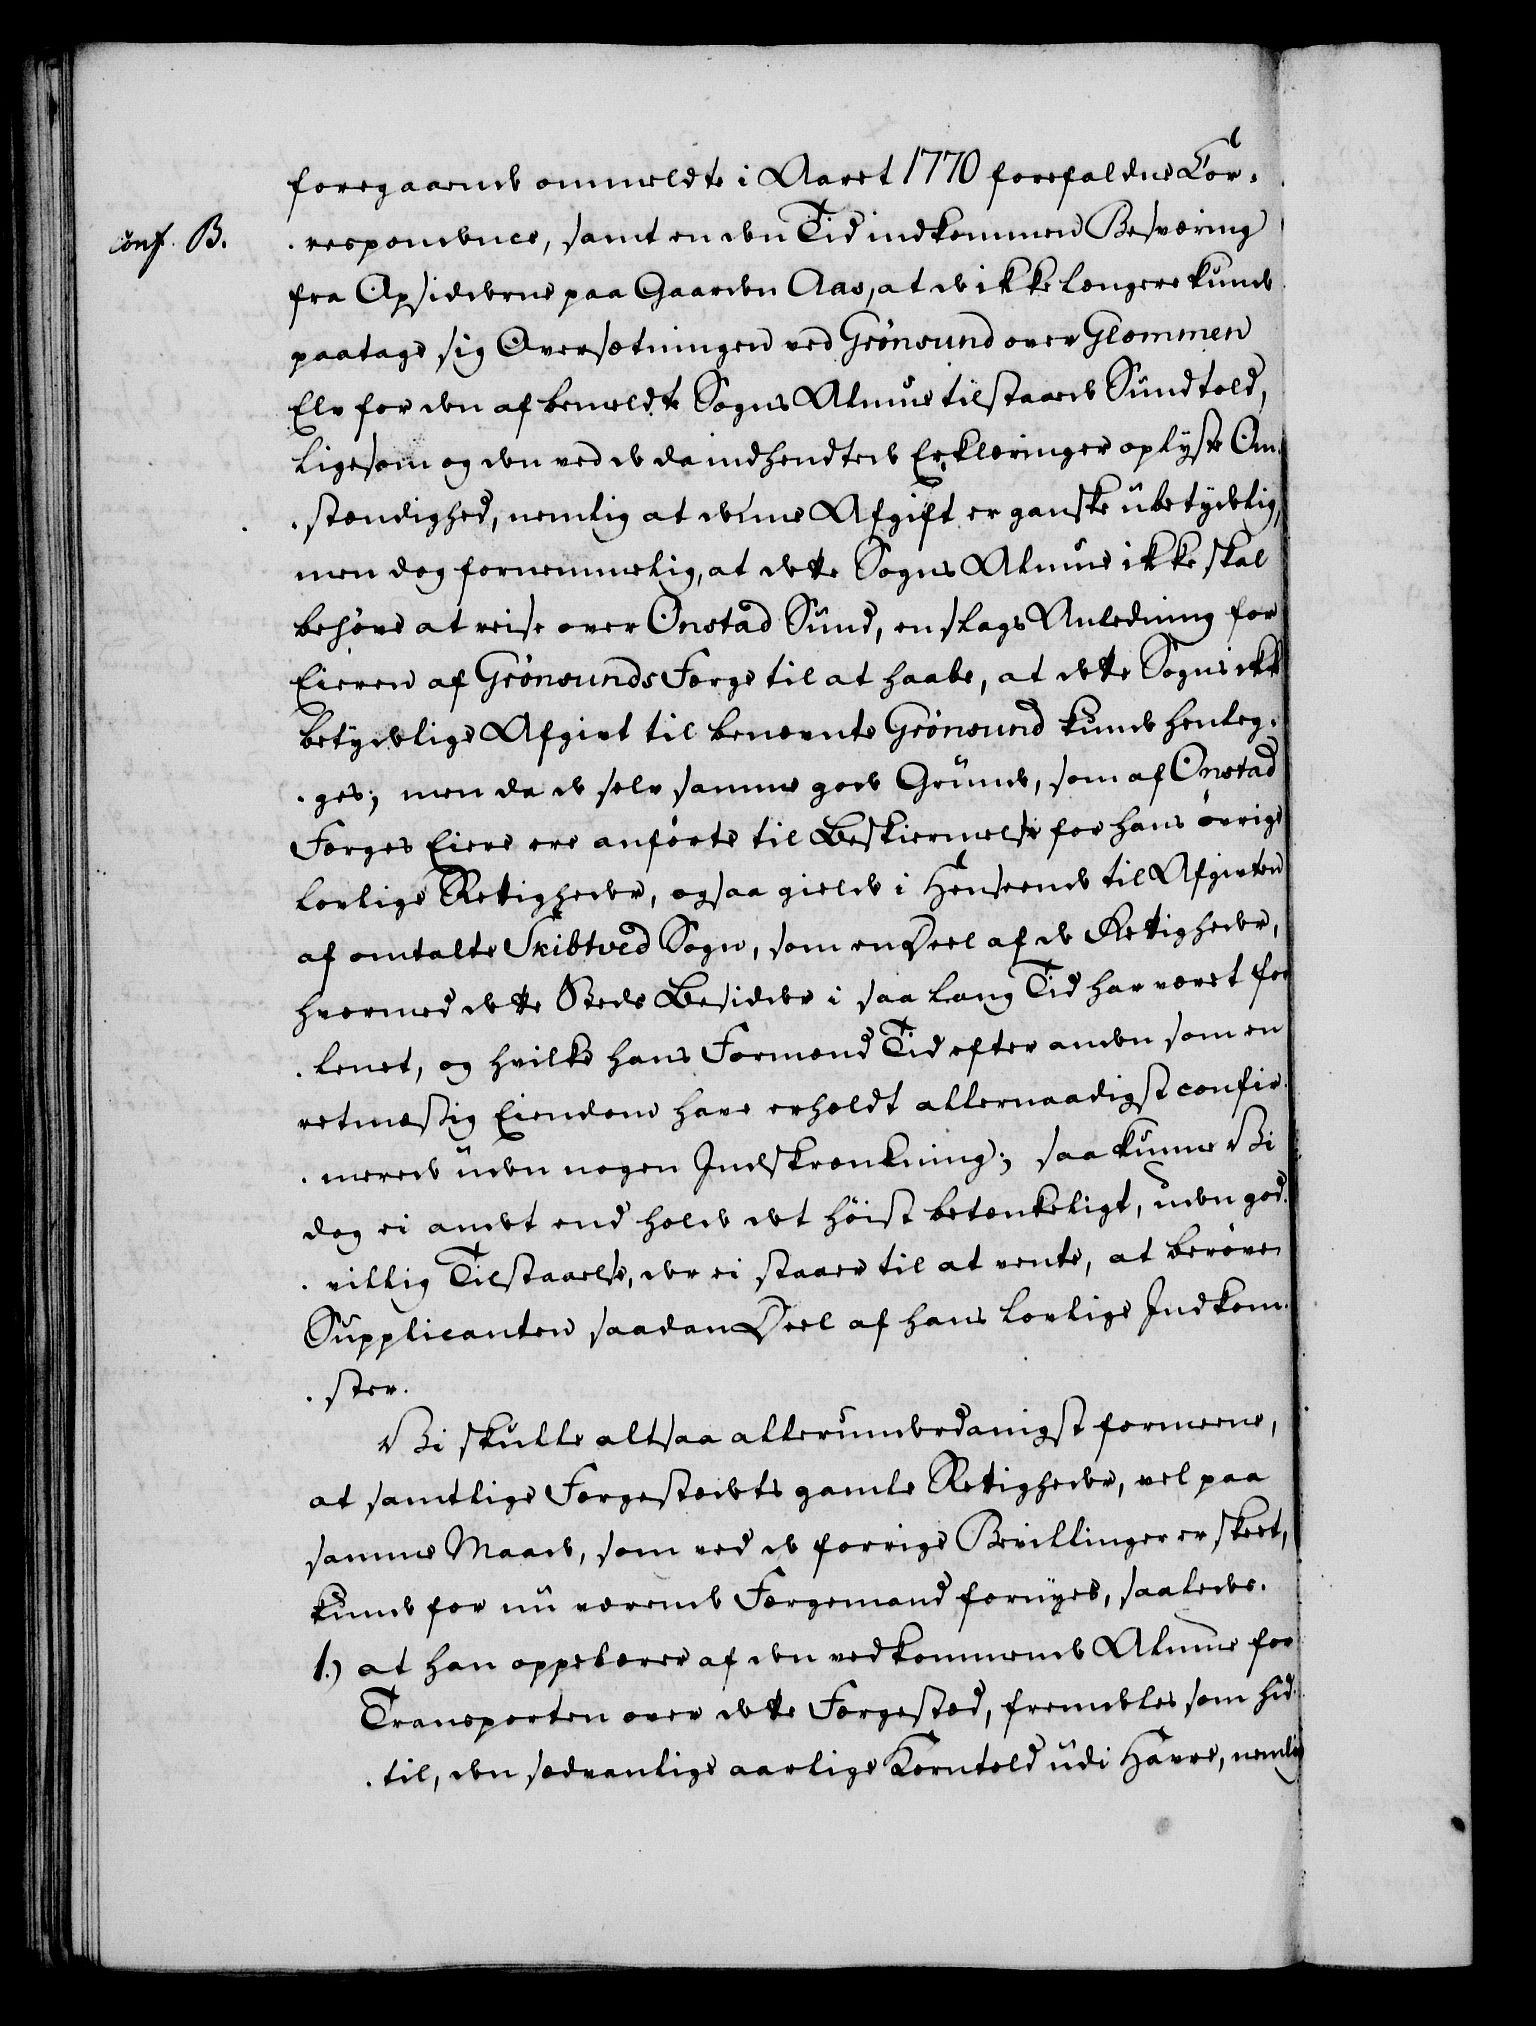 foregaaende ommeldte i Aaret 1770 forefaldne Cor-
conf. B.
-respondence, samt en den Tid indkommen Besværing
fra Opsidderne paa Gaarden Aas, at de ikke længere kunde
paatage sig Oversætningen ved Grönsund over Glommen
Elv for den af bemeldte Sogns Almue tilstaaede Sundtold,
ligesom og den ved de da indhendtede Erklæringer oplyste Om-
-stændighed, nemlig at denne Afgift er ganske ubetydelig,
men dog fornemmelig, at dette Sogns Almue ikke skal
behöve at reise over Onstad Sund, en slags Anledning for
Eieren af Grönsunds Færge til at haabe, at dette Sogns ikke
betydelige Afgivt til benævnte Grönsund kunde henleg-
-ges; men da de selv samme gode Grunde, som af Onstad
Færges Eiere ere anförte til Beskiermelse for hans övrige
lovlige Rettigheder, ogsaa gielde i Henseende til Afgivten
af omtalte Skibtved Sogn, som en Deel af de Rettigheder,
hvormed dette Steds Besidder i saa lang Tid har været for
-lenet, og hvilke hans Formænd Tid efter anden som en
retmæssig Eiendom have erholdt allernaadigst confir-
-merede uden nogen Indskrænkning; saa kunne Vi
dog ei andet end holde det höist betænkeligt, uden god-
-villig Tilstaaelse, der ei staaer til at vente, at beröve
Supplicanten saadan Deel af hans lovlige Indkom-
-ster.
Vi skulle altsaa allerunderdanigst formeene,
at samtlige Færgestædets gamle Rettigheder, vel paa
samme Maade, som ved de forrige Bevillinger er skeet,
kunde for nu værende Færgemand fornyes, saaledes.
1.) at han oppebærer af den vedkommende Almue for
Transporten over dette Færgestæd, fremdeles som hid-
-til, den sædvanlige aarlige Korntold udi Havre, nemlig